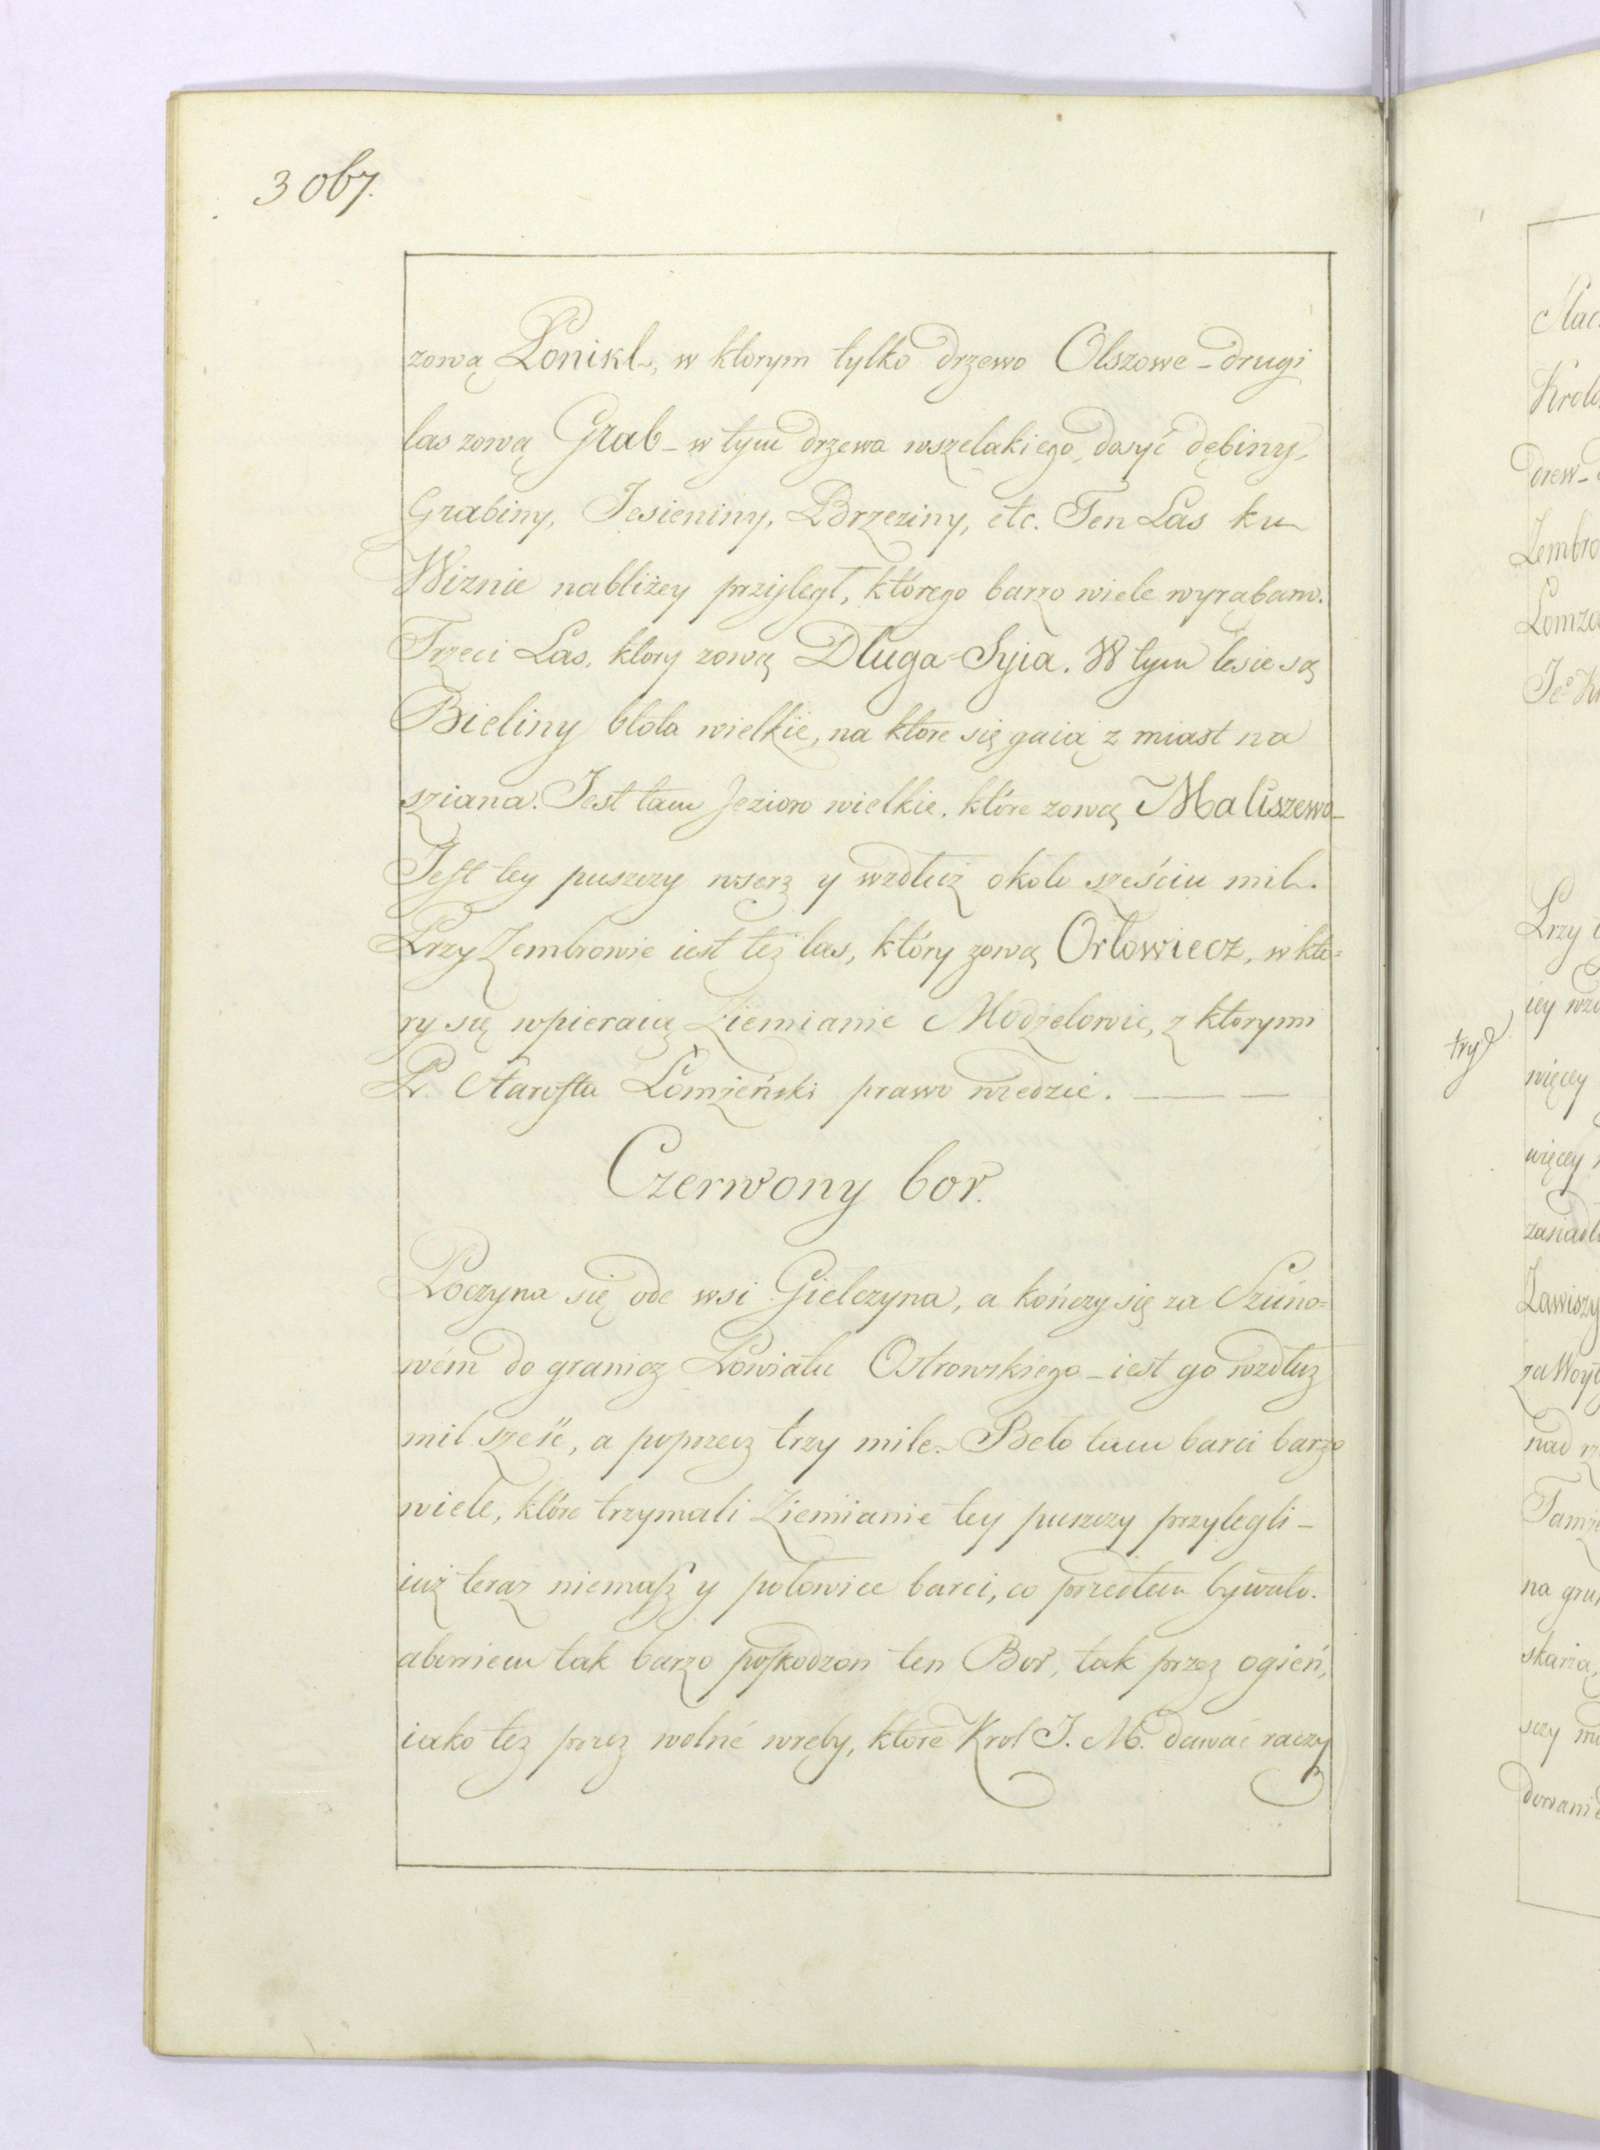 3 ob7.
zową Ponikl, w ktorym tylko drzewo Olszowe – drugi
las zową Grab – w tym drzewa wszelakiego, dosyć dębiny,
Grabiny, Jesieniny, Brzeziny, etc. Ten Las ku
Wiznie nabliżey przyległ, którego barzo wiele wyrąbano.
Trzeci Las, ktory zową Długa=Syia. W tym lesie są
Bieliny błota wielkie, na ktore się gaią z miast na
sziana. Jest tam Jezioro wielkie, które zową Maliszewo –
Jest tey puszczy wserz y wzdłuż około sześciu mil.
Przy Zembrowie iest też las, który zową Orłowiecz, w kto=
ry się wpieraią Ziemianie Modzelowie, z ktorymi
P. Starosta Łomzeński prawo wiedzie. — —
Czerwony bor.
Poczyna się ode wsi Giełczyna, a kończy się za Szumo=
wém do granicz Powiatu Ostrowskiego – iest go wzdłuż
mil sześć, a poprzecz trzy mile. Beło tam barci barzo
wiele, które trzymali Ziemianie tey puszczy przylegli –
iuż teraz niemasz y połowice barci, co przedtem bywało.
abowiem tak barzo poszkodzon ten Bor, tak przez ogień,
iako tez przez wolné wręby, ktore Krol J. M. dawać raczy
try
Krolo
drew –
Zembro
Łomza
Przy
iey wzd
więcey
więcey
zasiadł
Zawiszy
za Woyt
nad rz
Tamże
na grun
skarza,
sczy
dowanie